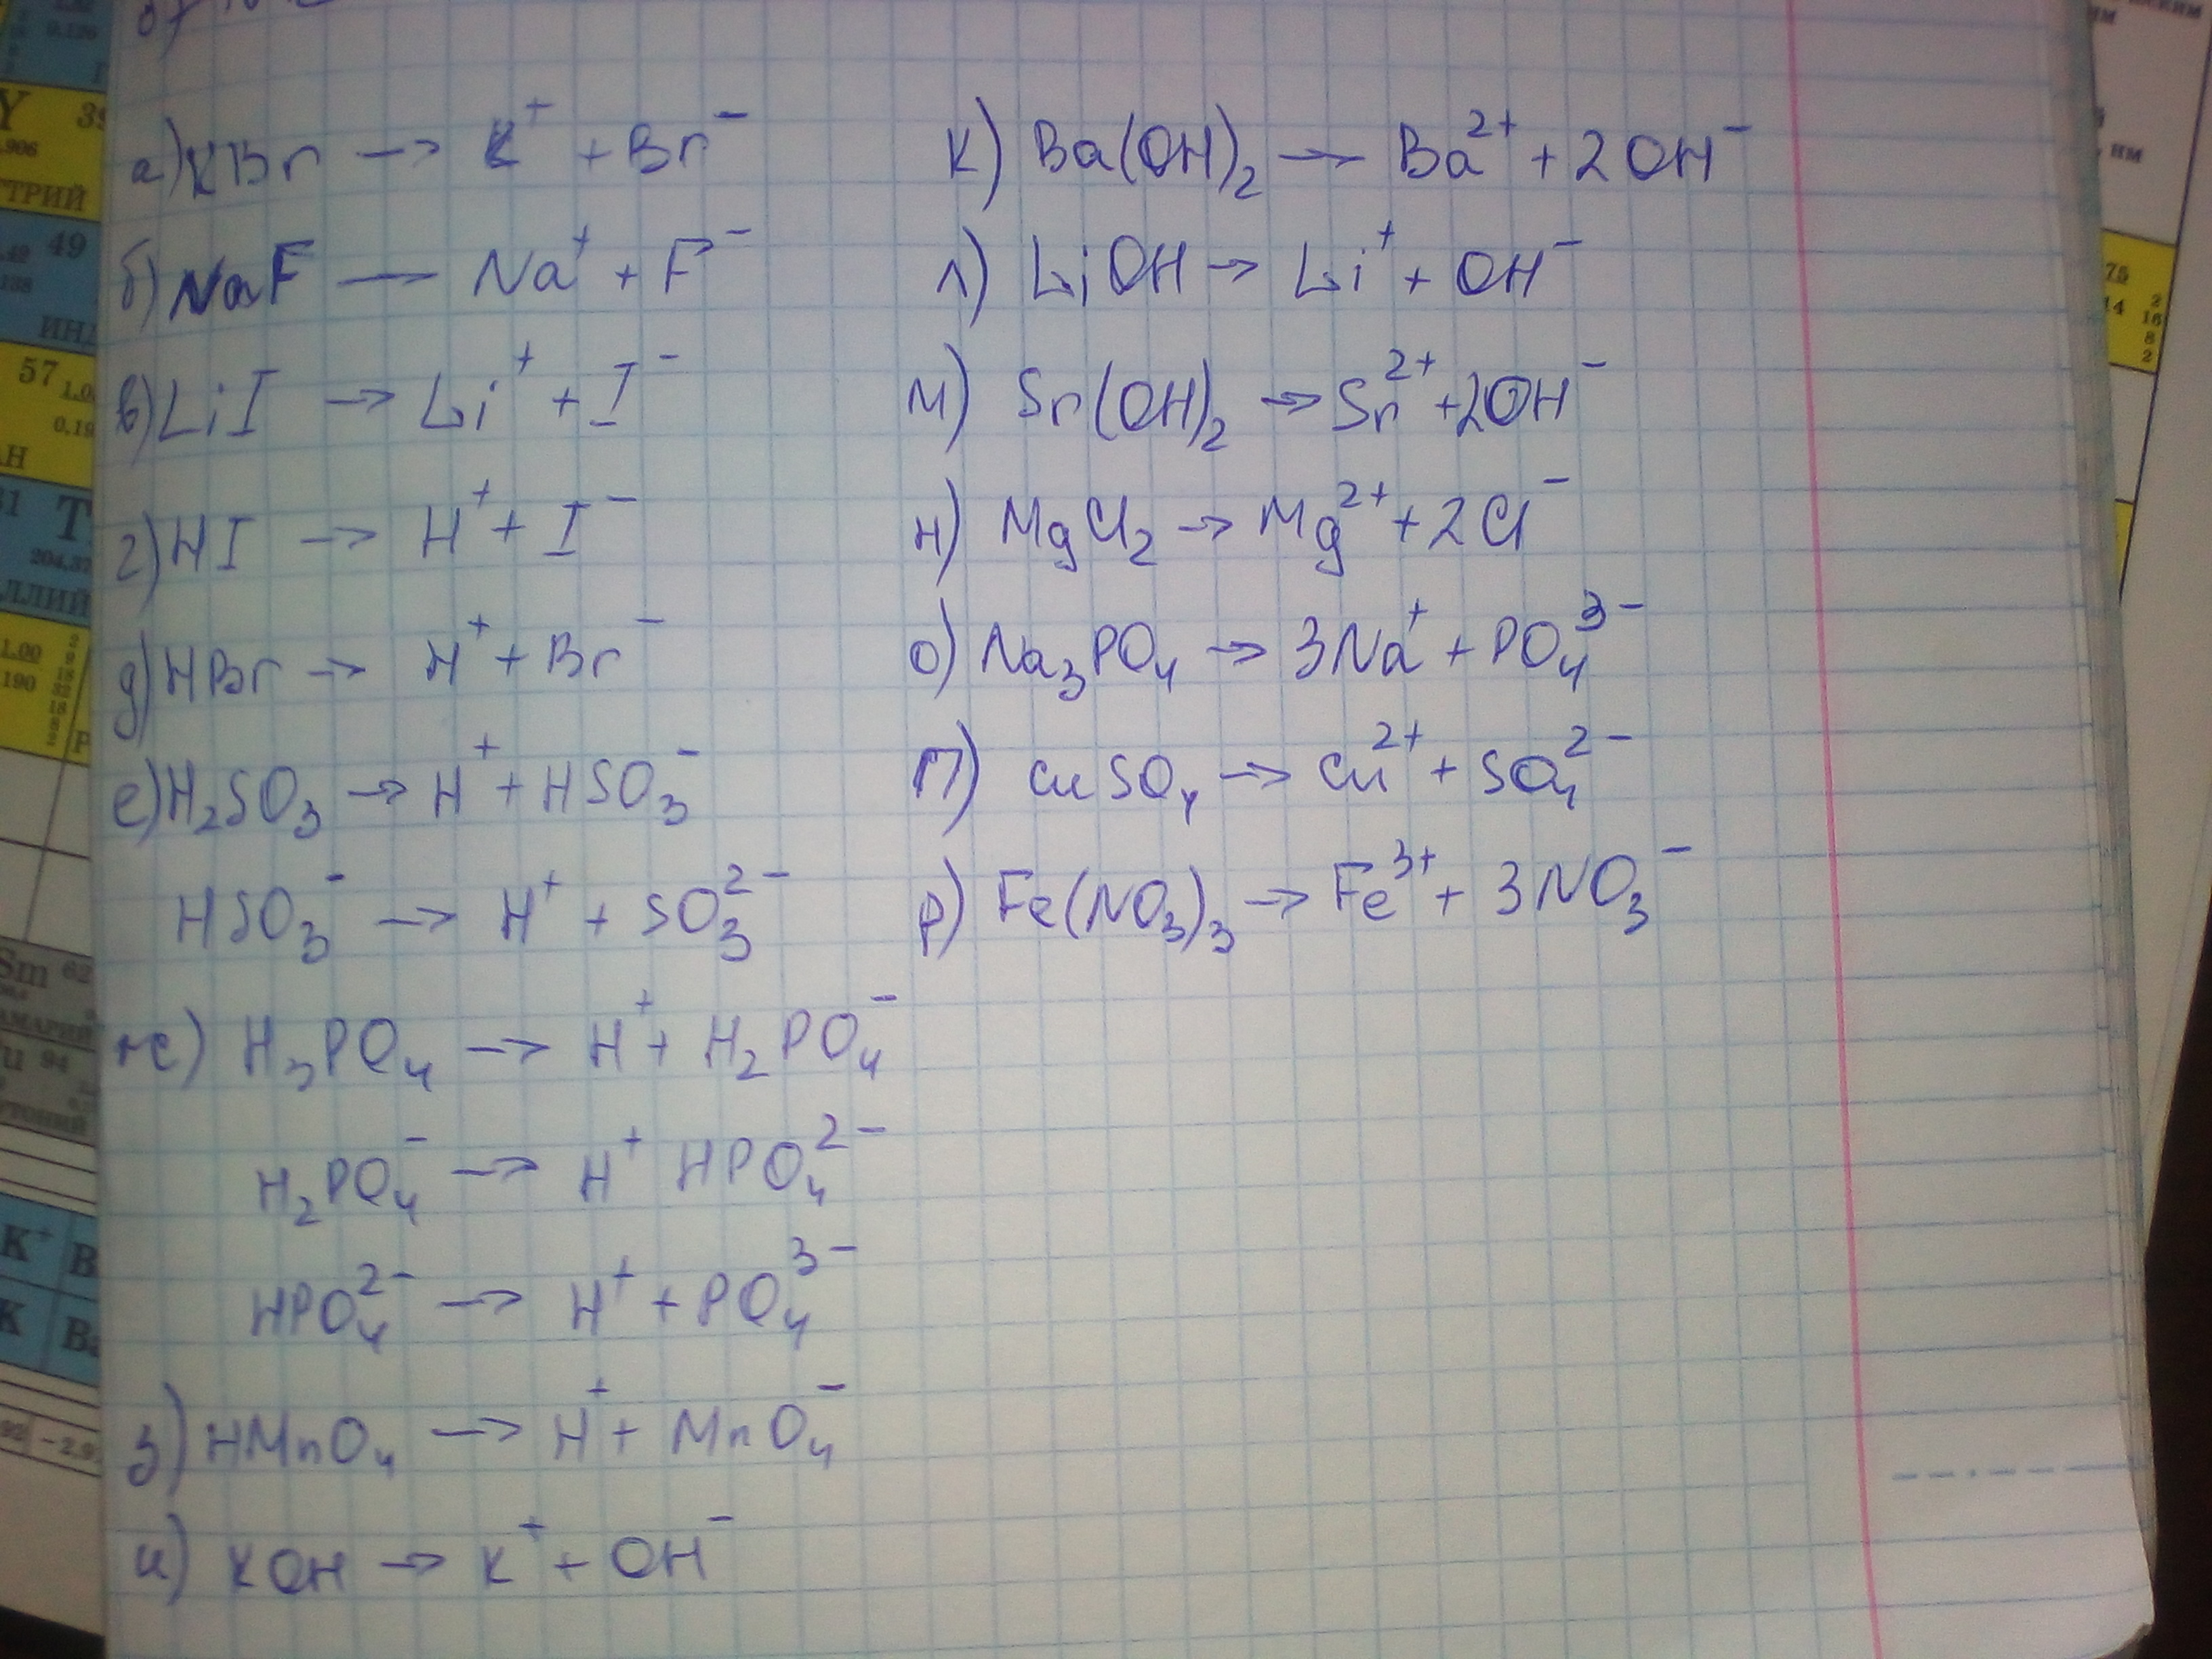 а) KBr → K⁺ + Br⁻
б) NaF — Na⁺ + F⁻
в) LiI → Li⁺ + I⁻
г) HI → H⁺ + I⁻
д) HBr → H⁺ + Br⁻
е) H₂SO₃ → H⁺ + HSO₃⁻
HSO₃⁻ → H⁺ + SO₃²⁻
ж) H₃PO₄ → H⁺ + H₂PO₄⁻
H₂PO₄⁻ → H⁺ HPO₄²⁻
HPO₄²⁻ → H⁺ + PO₄³⁻
з) HMnO₄ → H⁺ + MnO₄⁻
и) KOH → K⁺ + OH⁻
к) Ba(OH)₂ → Ba²⁺ + 2OH⁻
л) LiOH → Li⁺ + OH⁻
м) Sr(OH)₂ → Sr²⁺ + 2OH⁻
н) MgCl₂ → Mg²⁺ + 2Cl⁻
о) Na₃PO₄ → 3Na⁺ + PO₄³⁻
п) CuSO₄ → Cu²⁺ + SO₄²⁻
р) Fe(NO₃)₃ → Fe³⁺ + 3NO₃⁻
Y 39
49
57
204,37
1.00
190
Sm 62
94
K⁺
K Ba
75